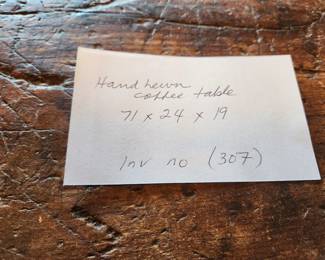 Hand hewn
coffee table
71 x 24 x 19
Inv no (307)